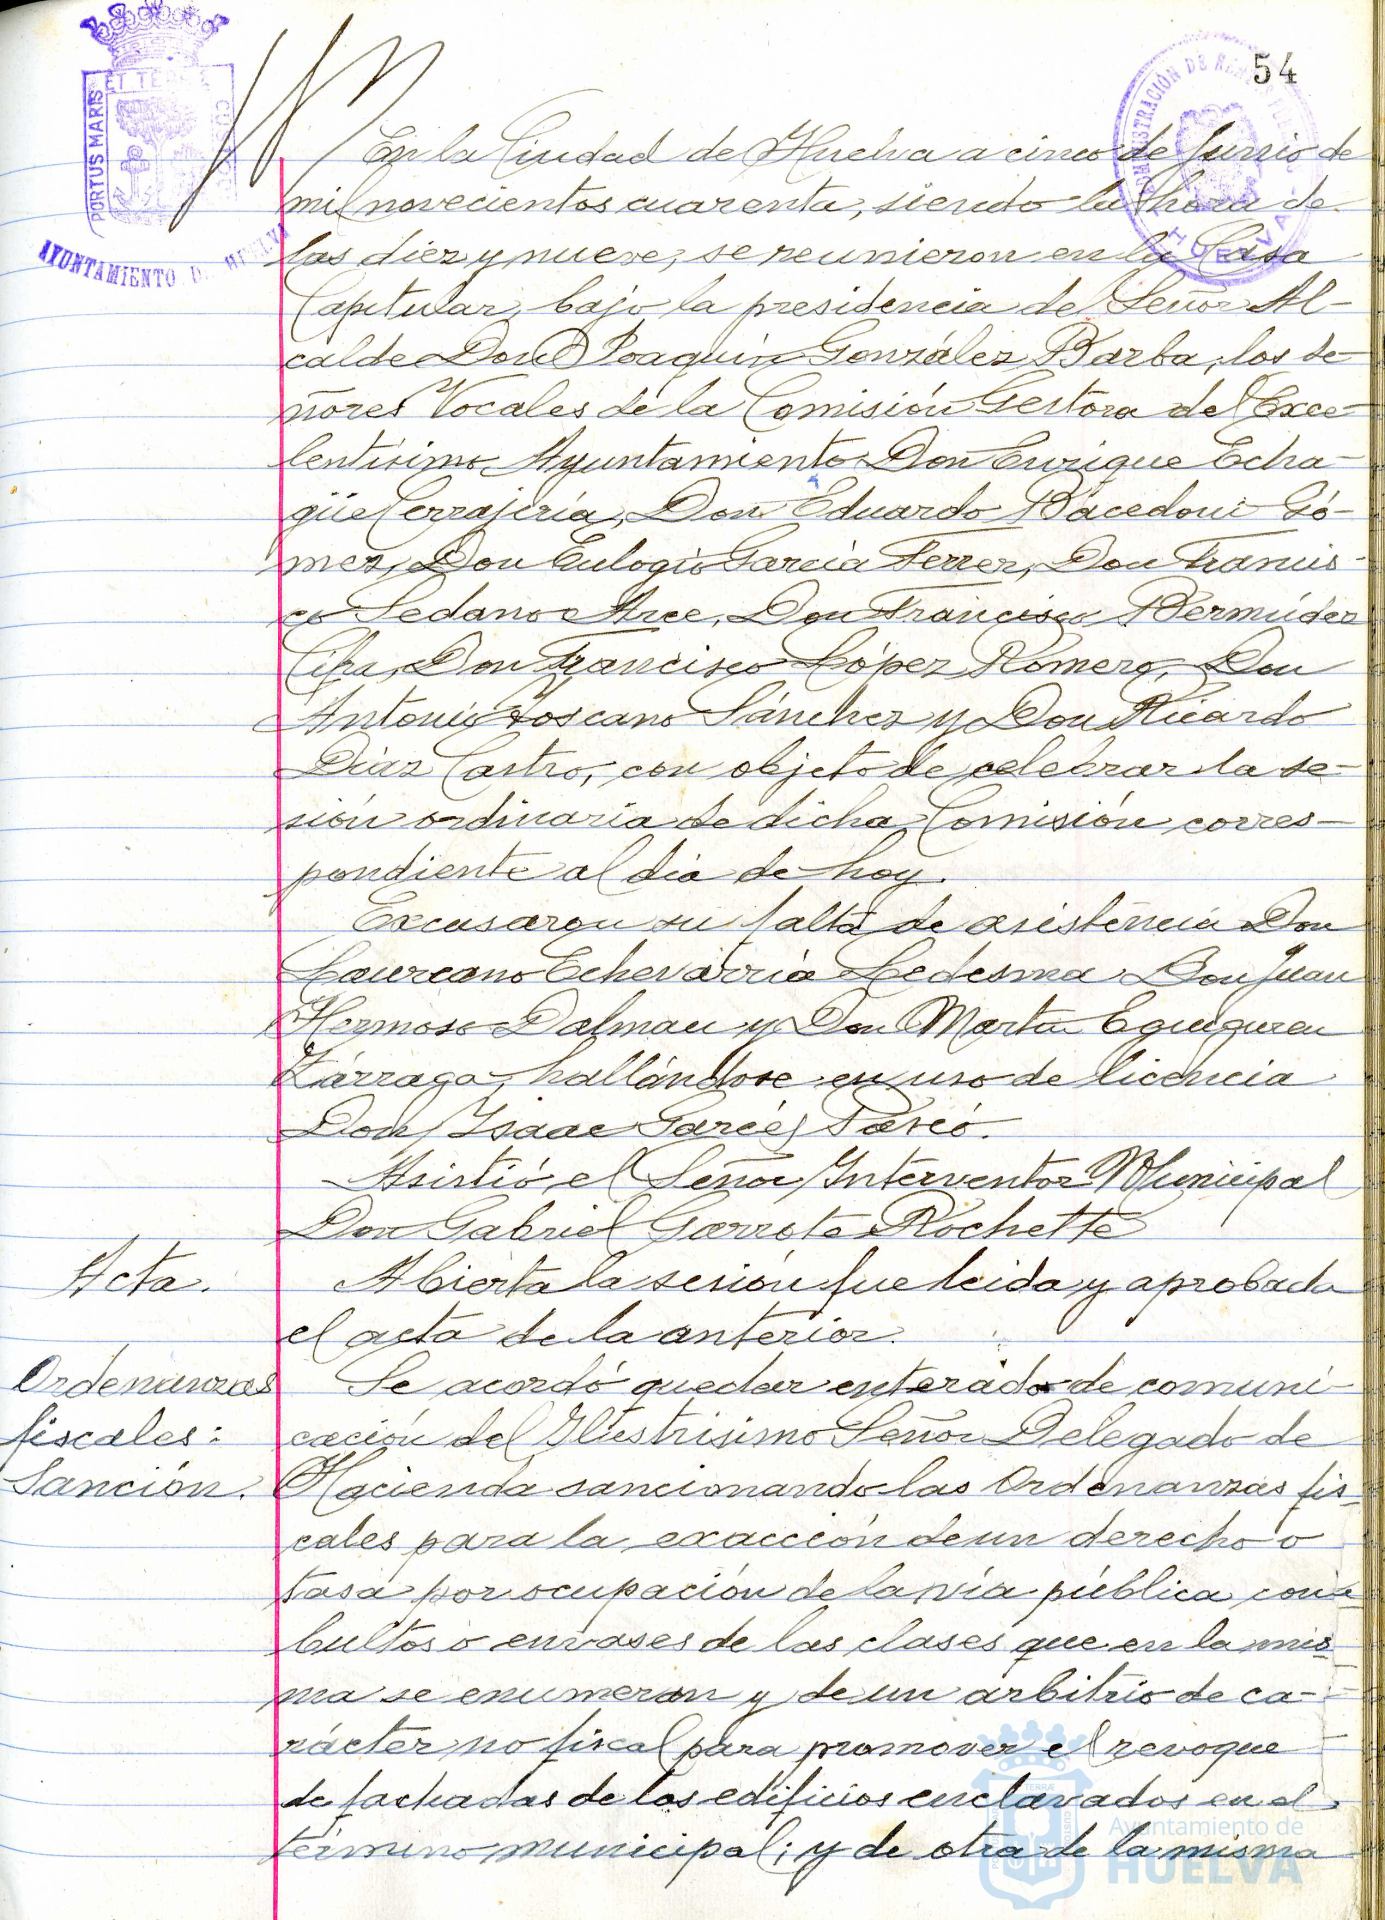 54
PORTUS MARIS ET TERRAE CUSTOS
AYUNTAMIENTO DE HUELVA
ADMINISTRACIÓN DE RENTAS
HUELVA
En la Ciudad de Huelva a cinco de Junio de
mil novecientos cuarenta, siendo la hora de
las diez y nueve, se reunieron en la Casa
Capitular, bajo la presidencia del Señor Al-
calde Don Joaquín González Barba, los se-
ñores Vocales de la Comisión Gestora del Exce-
lentísimo Ayuntamiento Don Enrique Echa-
güe Cerrajería, Don Eduardo Bácedoni Gó-
mez, Don Eulogio García Ferrer, Don Francis-
co Sedano Arce, Don Francisco Bermúdez
Don Francisco López Romero, Don
Antonio Toscano Sánchez y Don Ricardo
Díaz Castro, con objeto de celebrar la se-
sión ordinaria de dicha Comisión corres-
pondiente al día de hoy.
Excusaron su falta de asistencia Don
Laureano Echevarría Ledesma Don Juan
Hermoso Dalmau y Don Martín Eguiguren
Zárraga, hallándose en uso de licencia
Don Isaac Garcés
Asistió, el Señor Interventor Municipal
Don Gabriel Garrote Rochette
Acta.
Abierta la sesión fue leida y aprobada
el acta de la anterior.
Ordenanzas
fiscales:
Sanción.
Se acordó quedar enterado de comuni-
cación del Ilustrisimo Señor Delegado de
Hacienda sancionando las Ordenanzas fis-
cales para la exacción de un derecho o
tasa por ocupación de la vía pública con
bultos o envases de las clases que en la mis
ma se enumeran y de un arbitrio de ca-
rácter no fiscal para promover el revoque
de fachadas de los edificios enclavados en el
término municipal; y de otra de la misma
Ayuntamiento de
HUELVA